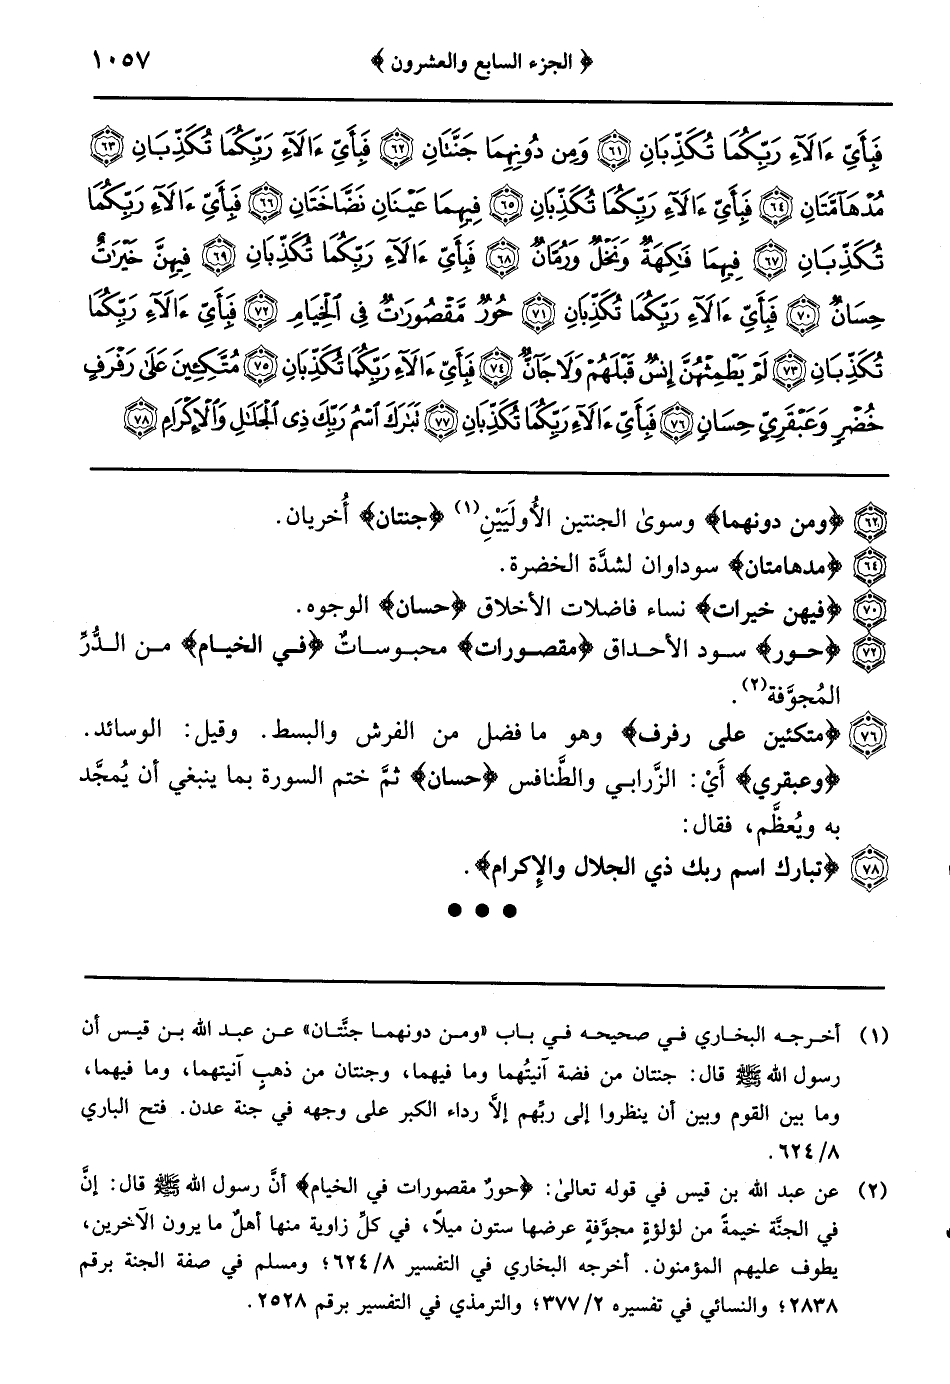 ﴿ الجزء السابع والعشرون ﴾ ١٠٥٧
فَبِأَيِّ ءَالَآءِ رَبِّكُمَا تُكَذِّبَانِ ٦١ وَمِن دُونِهِمَا جَنَّتَانِ ٦٢ فَبِأَيِّ ءَالَآءِ رَبِّكُمَا تُكَذِّبَانِ ٦٣
مُدْهَآمَّتَانِ ٦٤ فَبِأَيِّ ءَالَآءِ رَبِّكُمَا تُكَذِّبَانِ ٦٥ فِيهِمَا عَيْنَانِ نَضَّاخَتَانِ ٦٦ فَبِأَيِّ ءَالَآءِ رَبِّكُمَا
تُكَذِّبَانِ ٦٧ فِيهِمَا فَٰكِهَةٌ وَنَخْلٌ وَرُمَّانٌ ٦٨ فَبِأَيِّ ءَالَآءِ رَبِّكُمَا تُكَذِّبَانِ ٦٩ فِيهِنَّ خَيْرَٰتٌ
حِسَانٌ ٧٠ فَبِأَيِّ ءَالَآءِ رَبِّكُمَا تُكَذِّبَانِ ٧١ حُورٌ مَّقْصُورَٰتٌ فِى ٱلْخِيَامِ ٧٢ فَبِأَيِّ ءَالَآءِ رَبِّكُمَا
تُكَذِّبَانِ ٧٣ لَمْ يَطْمِثْهُنَّ إِنسٌ قَبْلَهُمْ وَلَا جَآنٌّ ٧٤ فَبِأَيِّ ءَالَآءِ رَبِّكُمَا تُكَذِّبَانِ ٧٥ مُتَّكِـِٔينَ عَلَىٰ رَفْرَفٍ
خُضْرٍ وَعَبْقَرِيٍّ حِسَانٍ ٧٦ فَبِأَيِّ ءَالَآءِ رَبِّكُمَا تُكَذِّبَانِ ٧٧ تَبَٰرَكَ ٱسْمُ رَبِّكَ ذِى ٱلْجَلَٰلِ وَٱلْإِكْرَامِ ٧٨
٦٢ ﴿ومن دونهما﴾ وسوىٰ الجنتين الأُولَيَيْنِ(١) ﴿جنتان﴾ أُخريان.
٦٤ ﴿مدهامتان﴾ سوداوان لشدَّة الخضرة.
٧٠ ﴿فيهن خيرات﴾ نساء فاضلات الأخلاق ﴿حسان﴾ الوجوه.
٧٢ ﴿حور﴾ سود الأحداق ﴿مقصورات﴾ محبوساتٌ ﴿في الخيام﴾ من الدُّرِّ
المُجوَّفة(٢).
٧٦ ﴿متكئين على رفرف﴾ وهو ما فضل من الفرش والبسط. وقيل: الوسائد.
﴿وعبقري﴾ أَيْ: الزَّرابي والطَّنافس ﴿حسان﴾ ثمَّ ختم السورة بما ينبغي أن يُمجَّد
به ويُعظَّم، فقال:
٧٨ ﴿تبارك اسم ربك ذي الجلال والإِكرام﴾.
● ● ●
(١) أخرجه البخاري في صحيحه في باب «ومن دونهما جنَّتان» عن عبد الله بن قيس أن
رسول الله ﷺ قال: جنتان من فضة آنيتُهما وما فيهما، وجنتان من ذهبٍ آنيتهما، وما فيهما،
وما بين القوم وبين أن ينظروا إلى ربِّهم إلاَّ رداء الكبر على وجهه في جنة عدن. فتح الباري
٦٢٤/٨.
(٢) عن عبد الله بن قيس في قوله تعالىٰ: ﴿حورٌ مقصورات في الخيام﴾ أنَّ رسول الله ﷺ قال: إنَّ
في الجنَّة خيمةً من لؤلؤةٍ مجوَّفةٍ عرضها ستون ميلاً، في كلِّ زاوية منها أهلٌ ما يرون الآخرين،
يطوف عليهم المؤمنون. أخرجه البخاري في التفسير ٦٢٤/٨؛ ومسلم في صفة الجنة برقم
٢٨٣٨؛ والنسائي في تفسيره ٣٧٧/٢؛ والترمذي في التفسير برقم ٢٥٢٨.